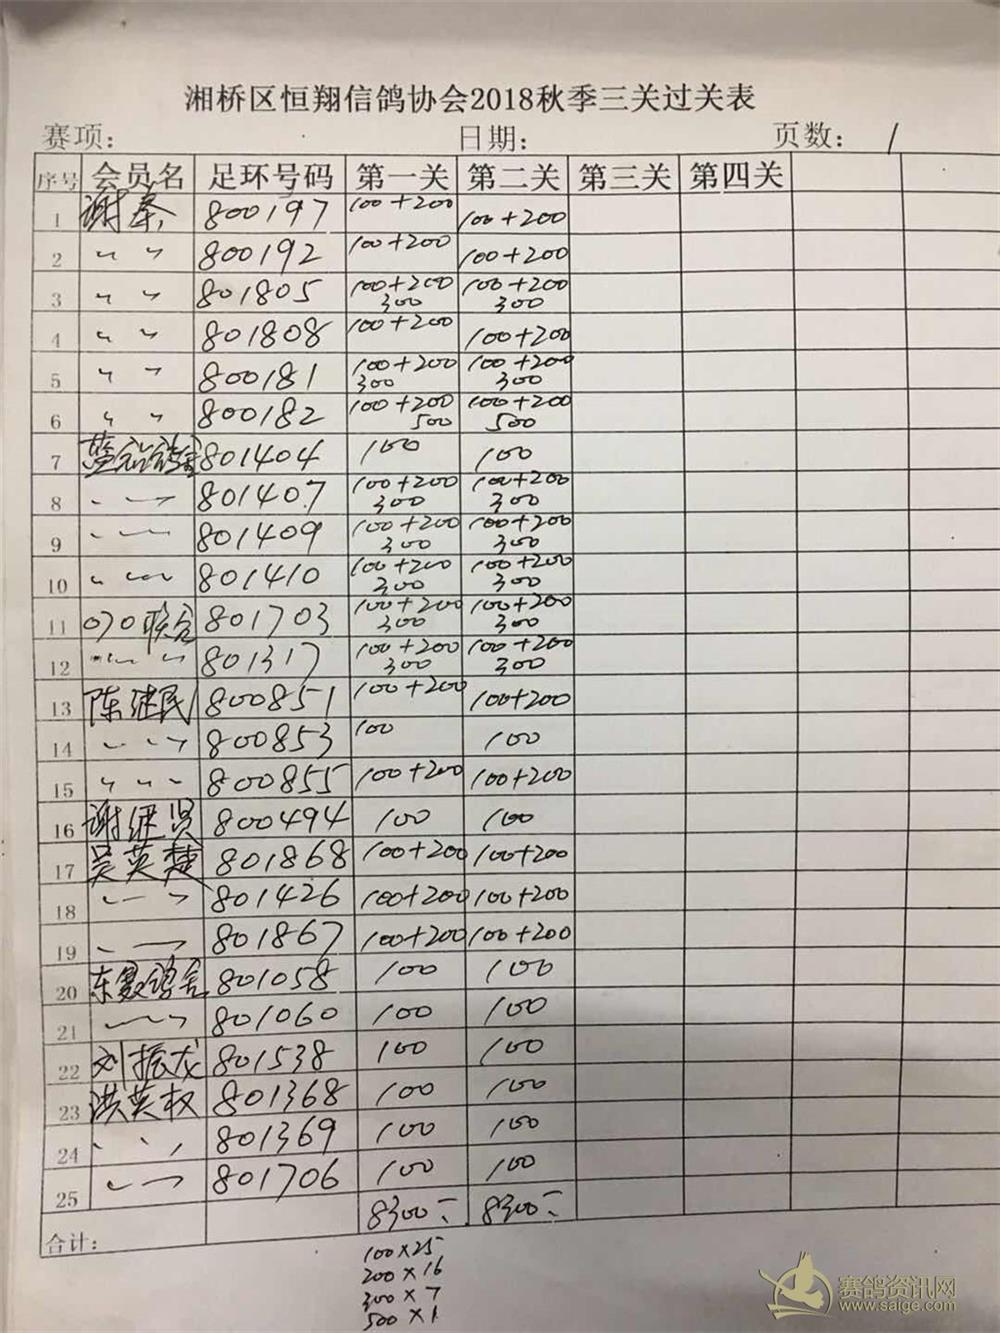 湘桥区恒翔信鸽协会2018秋季三关过关表
赛项: 日期: 页数: 1
序号 会员名 足环号码 第一关 第二关 第三关 第四关
1 谢奉 800197 100+200 100+200
2 〃 〃 800192 100+200 100+200
3 〃 〃 801805 100+200 300 100+200 300
4 〃 〃 801808 100+200 100+200
5 〃 〃 800181 100+200 300 100+200 300
6 〃 〃 800182 100+200 500 100+200 500
7 801404 100 100
8 〃 〃 801407 100+200 300 100+200 300
9 〃 〃 801409 100+200 300 100+200 300
10 〃 〃 801410 100+200 300 100+200 300
11 070联合 801703 100+200 300 100+200 300
12 〃 〃 〃 801317 100+200 300 100+200 300
13 陈继民 800851 100+200 100+200
14 〃 〃 〃 800853 100 100
15 〃 〃 〃 800855 100+200 100+200
16 谢继贤 800494 100 100
17 吴英楚 801868 100+200 100+200
18 〃 〃 801426 100+200 100+200
19 〃 〃 801867 100+200 100+200
20 东 鸽舍 801058 100 100
21 〃 〃 801060 100 100
22 刘振龙 801538 100 100
23 洪英权 801368 100 100
24 〃 〃 〃 801369 100 100
25 〃 〃 801706 100 100
合计: 8300 8300
100×25
200×16
300×7
500×1
赛鸽资讯网
www.saige.com